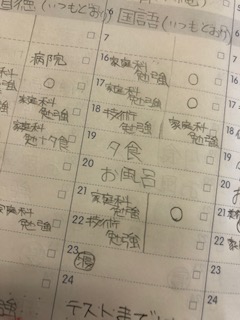 道徳(いつもどおり)
6 国語(いつもどおり)
7
病院
16 家庭科 勉強 ○
○
17 家庭科 勉強 ○
家庭科 勉強
18 技術 勉強
家庭科 勉強
家庭科 勉+夕食
19 夕食
20 お風呂
家庭科 勉強
21 家庭科 勉強 ○
21
22 技術 勉強
22 家庭科
23 寝
23
24
24
強
テストまで